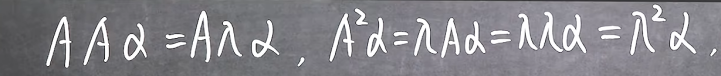 AAα=Aλα, A²α=λAα=λλα=λ²α,